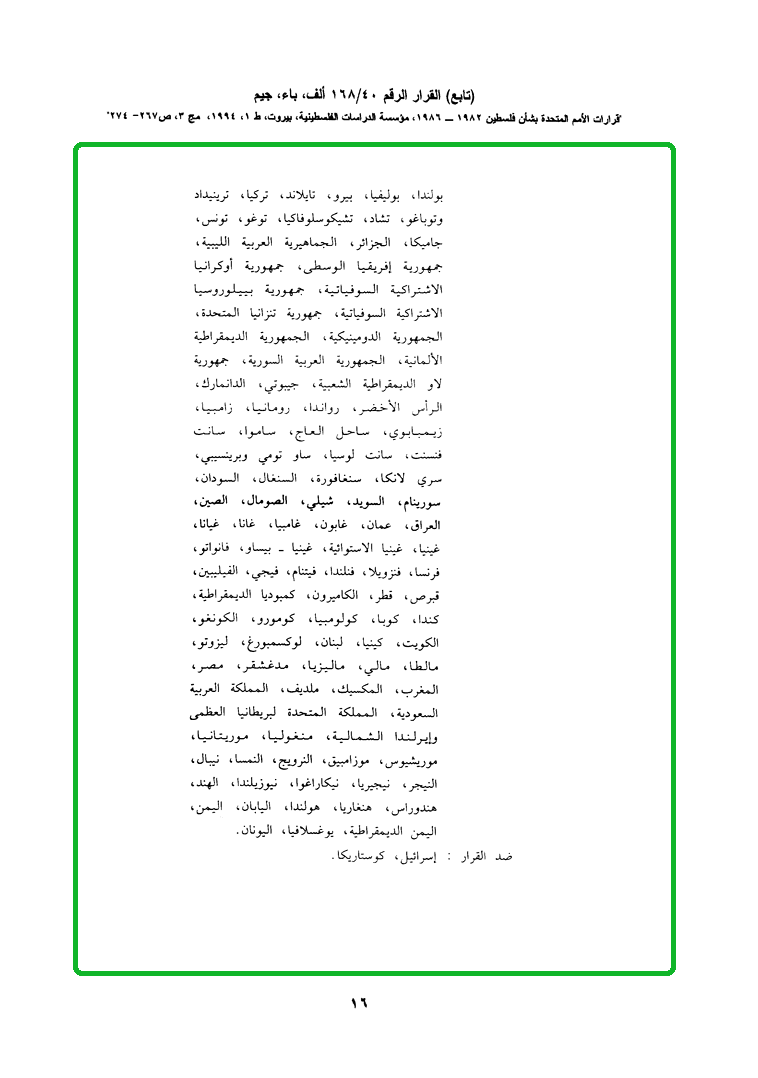 (تابع) القرار الرقم ١٦٨/٤٠ ألف، باء، جيم
"قرارات الأمم المتحدة بشأن فلسطين ١٩٨٢ ــ ١٩٨٦، مؤسسة الدراسات الفلسطينية، بيروت، ط ١، ١٩٩٤، مج ٣، ص٢٦٧- ٢٧٤"
بولندا، بوليفيا، بيرو، تايلاند، تركيا، ترينيداد
وتوباغو، تشاد، تشيكوسلوفاكيا، توغو، تونس،
جاميكا، الجزائر، الجماهيرية العربية الليبية،
جمهورية إفريقيا الوسطى، جمهورية أوكرانيا
الاشتراكية السوفياتية، جمهورية بييلوروسيا
الاشتراكية السوفياتية، جمهورية تنزانيا المتحدة،
الجمهورية الدومينيكية، الجمهورية الديمقراطية
الألمانية، الجمهورية العربية السورية، جمهورية
لاو الديمقراطية الشعبية، جيبوتي، الدانمارك،
الرأس الأخضر، رواندا، رومانيا، زامبيا،
زيمبابوي، ساحل العاج، ساموا، سانت
فنسنت، سانت لوسيا، ساو تومي وبرينسيبي،
سري لانكا، سنغافورة، السنغال، السودان،
سورينام، السويد، شيلي، الصومال، الصين،
العراق، عمان، غابون، غامبيا، غانا، غيانا،
غينيا، غينيا الاستوائية، غينيا ـ بيساو، فانواتو،
فرنسا، فنزويلا، فنلندا، فيتنام، فيجي، الفيليبين،
قبرص، قطر، الكاميرون، كمبوديا الديمقراطية،
كندا، كوبا، كولومبيا، كومورو، الكونغو،
الكويت، كينيا، لبنان، لوكسمبورغ، ليزوتو،
مالطا، مالي، ماليزيا، مدغشقر، مصر،
المغرب، المكسيك، ملديف، المملكة العربية
السعودية، المملكة المتحدة لبريطانيا العظمى
وإيرلندا الشمالية، منغوليا، موريتانيا،
موريشيوس، موزامبيق، النرويج، النمسا، نيبال،
النيجر، نيجيريا، نيكاراغوا، نيوزيلندا، الهند،
هندوراس، هنغاريا، هولندا، اليابان، اليمن،
اليمن الديمقراطية، يوغسلافيا، اليونان.
ضد القرار : إسرائيل، كوستاريكا.
١٦